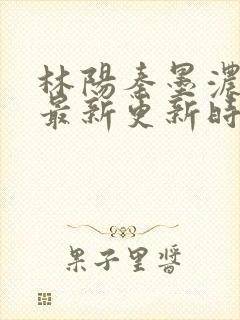 林陽秦墨濃
最新更新時
果子里醬